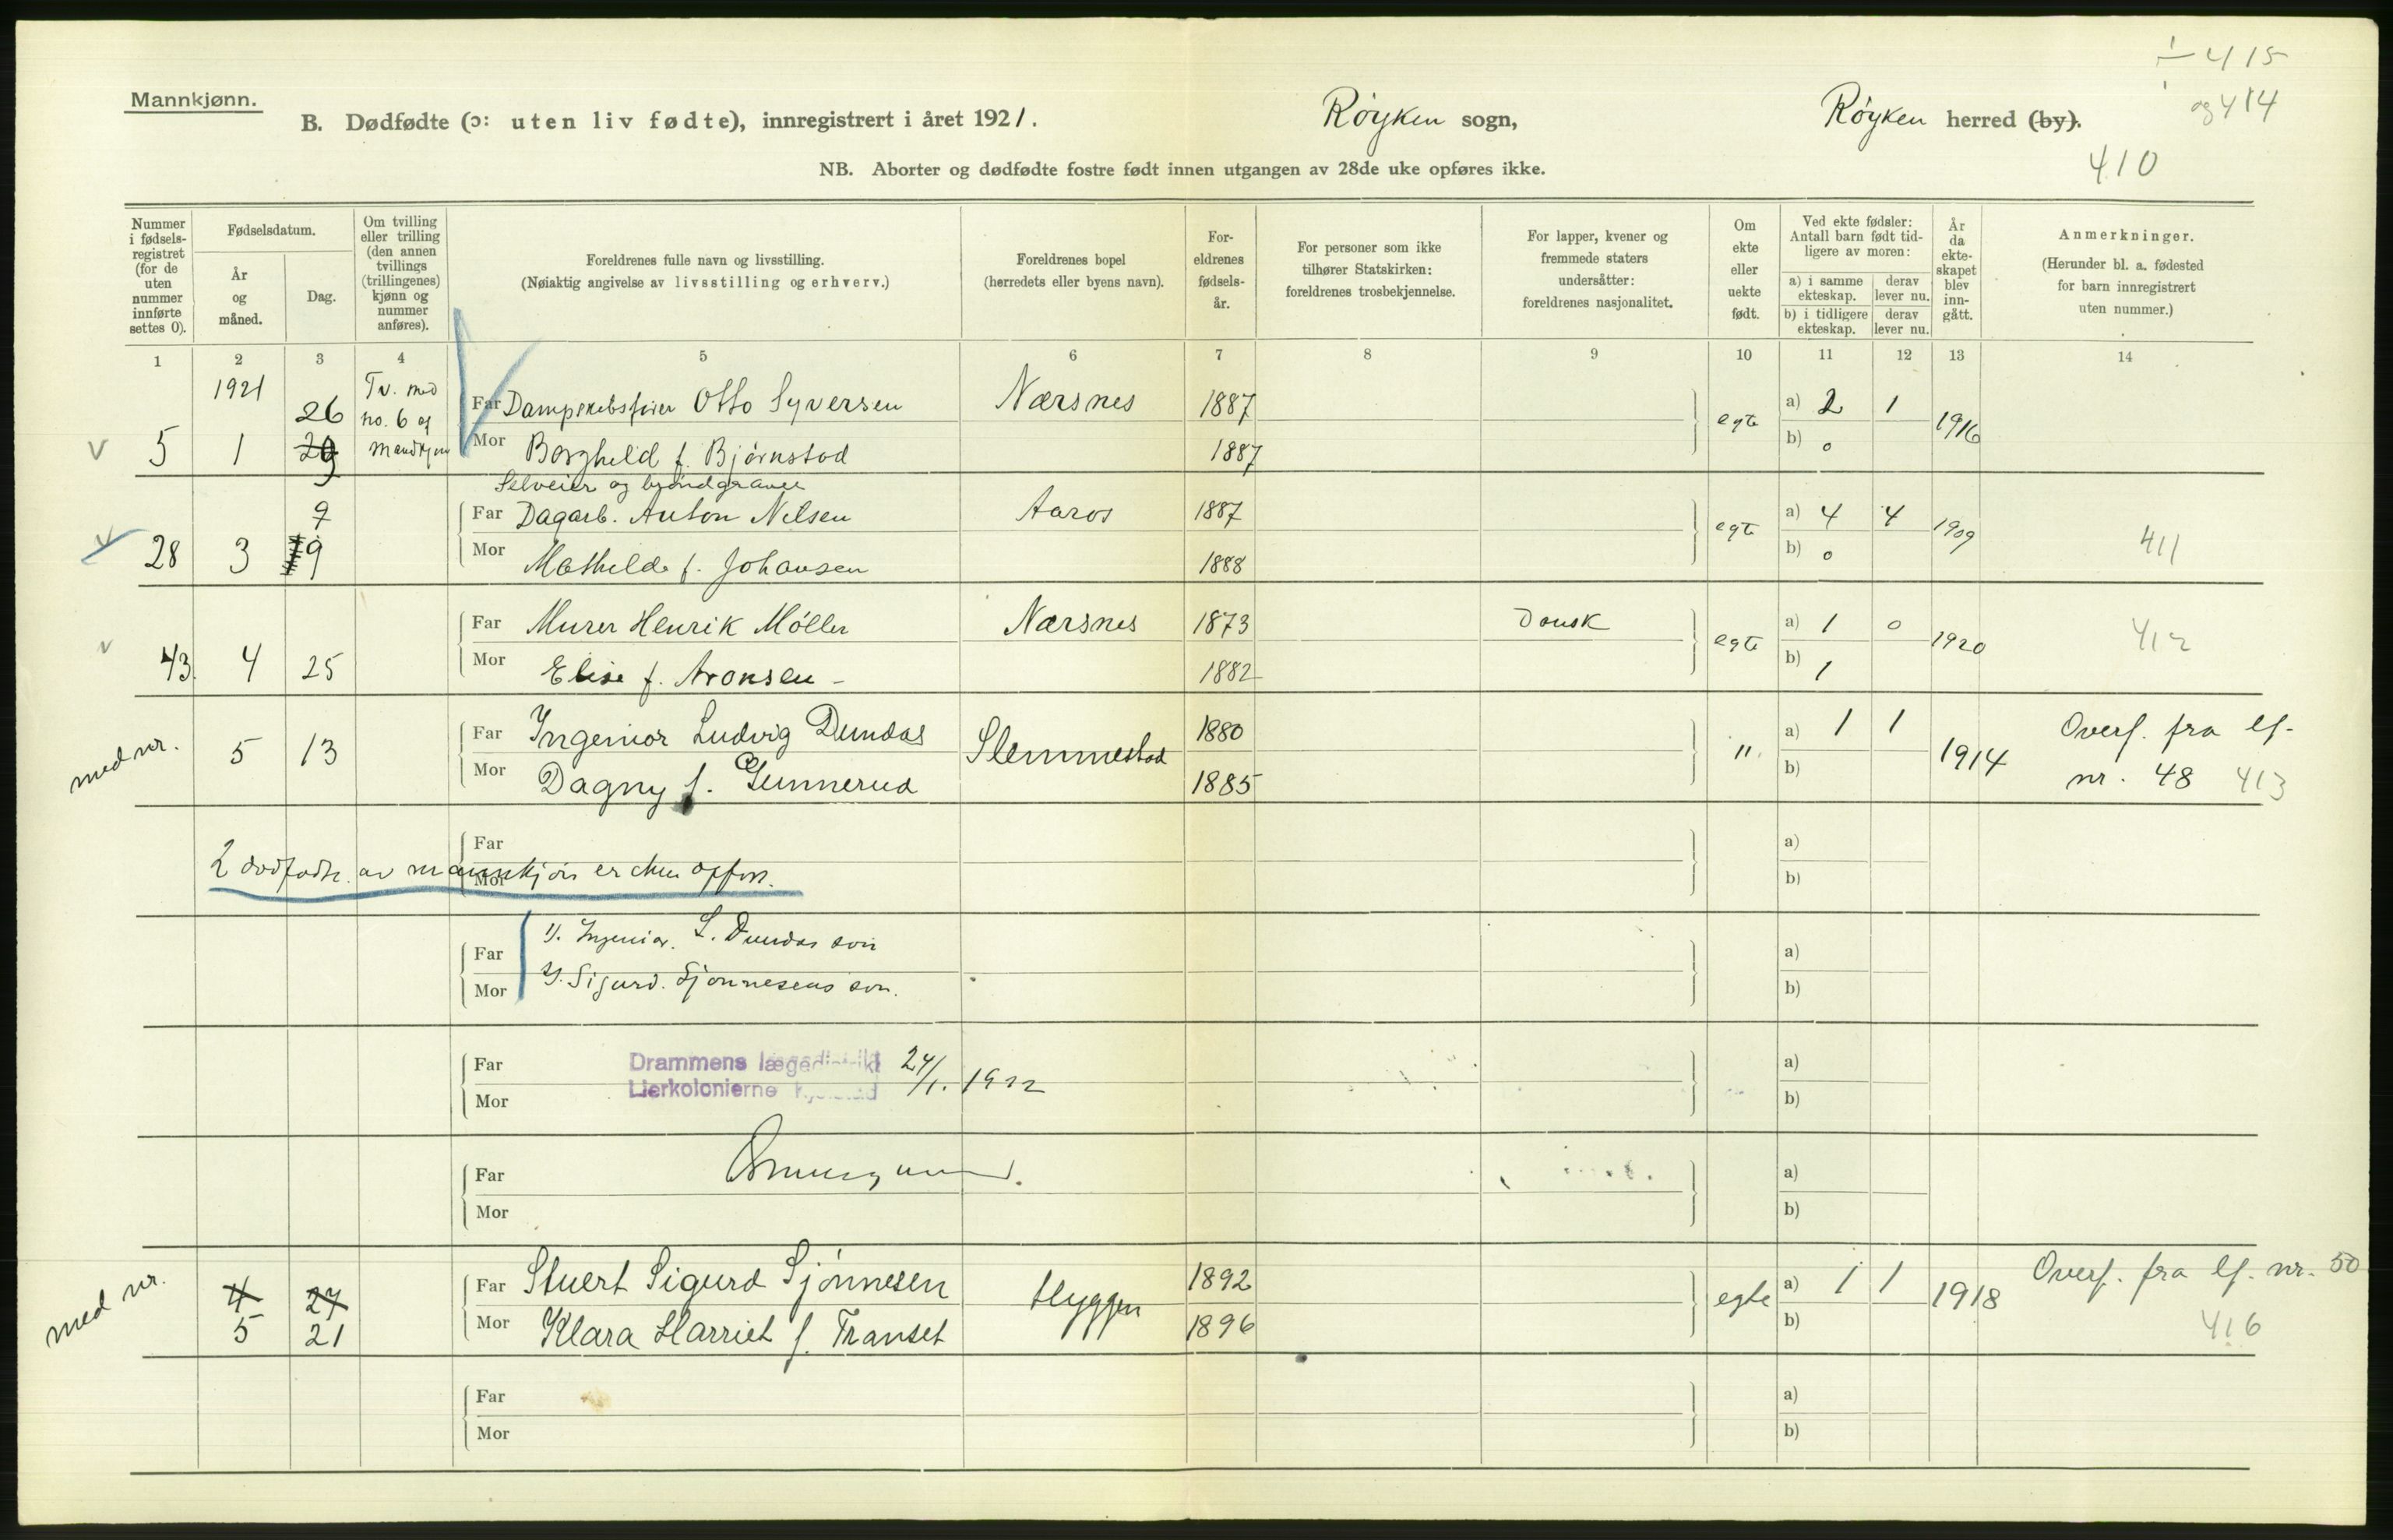 ÷ 415
og 414
410
Mannkjønn.
B. Dødfødte (ɔ: uten liv fødte), innregistrert i året 1921. Røyken sogn, Røyken herred (by).
NB. Aborter og dødfødte fostre født innen utgangen av 28de uke opføres ikke.
Nummer i fødsels-registret (for de uten nummer innførte settes 0).
Fødselsdatum.
År og måned.
Dag.
Om tvilling eller trilling (den annen tvillings (trillingenes) kjønn og nummer anføres).
Foreldrenes fulle navn og livsstilling.
(Nøiaktig angivelse av livsstilling og erhverv.)
Foreldrenes bopel
(herredets eller byens navn).
For-eldrenes fødsels-år.
For personer som ikke tilhører Statskirken: foreldrenes trosbekjennelse.
For lapper, kvener og fremmede staters undersåtter: foreldrenes nasjonalitet.
Om ekte eller uekte født.
Ved ekte fødsler: Antall barn født tid-ligere av moren:
a) i samme ekteskap. derav lever nu.
b) i tidligere ekteskap. derav lever nu.
År da ekte-skapet blev inn-gått.
Anmerkninger.
(Herunder bl. a. fødested for barn innregistrert uten nummer.)
1 2 3 4 5 6 7 8 9 10 11 12 13 14
1921 26 Tv. med no. 6 af mandkjøn
Far Otto Syversen Nærsnes 1887 egte a) 2 1 1916
v 5 1 29 Mor Borghild f. Bjørnstad 1887 b) 0
Selveier og brøndgraver
9 Far Dagarb. Anton Nilsen Aaros 1887 egte a) 4 4 1909
v 28 3 9 Mor Mathilde f. Johansen 1888 b) 0 411
Far Murer Henrik Møller Nærsnes 1873 Dansk egte a) 1 0 1920 412
v 43. 4 25 Mor Elise f. Aronsen - 1882 b) 1
med nr. 5 13 Far Ingeniør Ludvig Dundas Slemmestad 1880 " a) 1 1 1914 Overf. fra lf.
Mor Dagny f. Gunnerud 1885 b) nr. 48 413
Far a)
2 dødfødte av mannkjøn er opført.
Mor b)
Far 1). Ingeniør. L. Dundas søn a)
Mor 2). Sigurd. Sjønnesens søn. b)
Far Drammens lægedistrikt 24/1. 1922 a)
Mor Lierkolonierne b)
Far a)
Mor b)
med nr. 4 27 Far Stuert Sigurd Sjønnesen Hyggen 1892 egte a) 1 1 1918 Overf. fra lf. nr. 50
5 21 Mor Klara Harriet f. Transet 1896 b) 416
Far a)
Mor b)